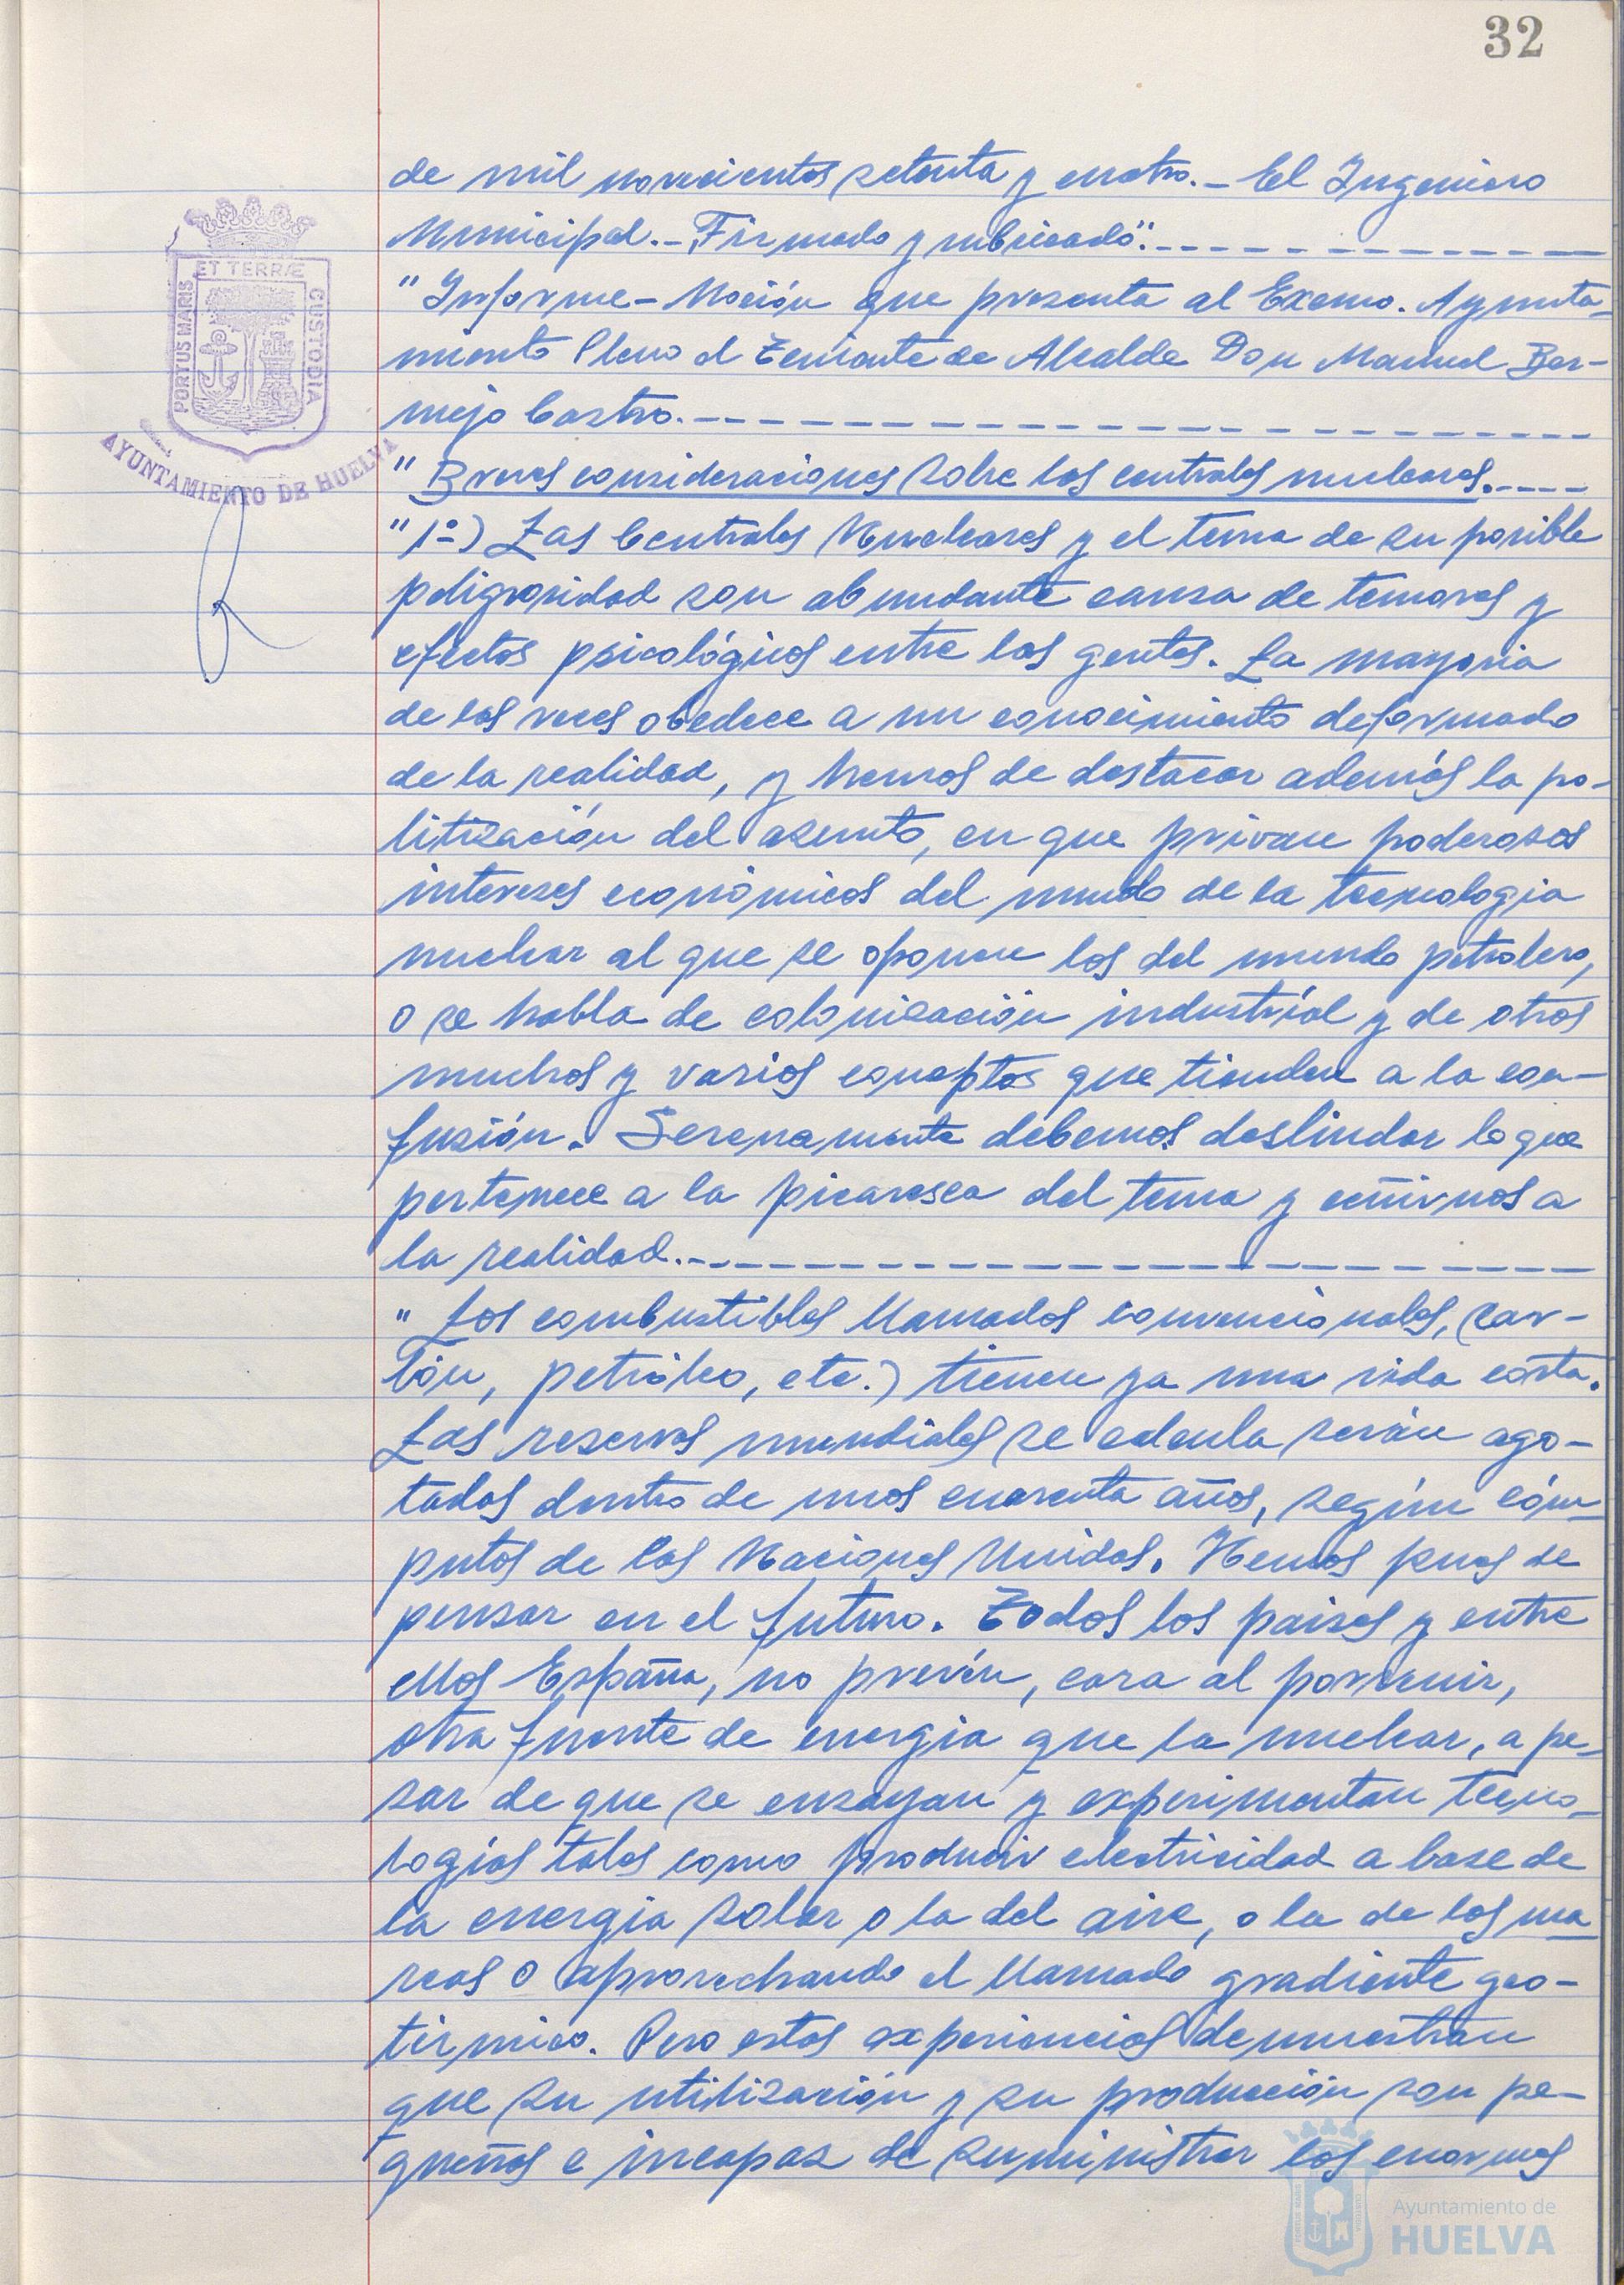 32
de mil novecientos setenta y cuatro.- El Ingeniero
Municipal.- Firmado y rubricado".
"Informe-Moción que presenta al Excmo. Ayunta-
miento Pleno el Teniente de Alcalde Don Manuel Ber-
mejo Castro.
"Breves consideraciones sobre las centrales nucleares.
"1º) Las Centrales Nucleares y el tema de su posible
peligrosidad son abundante causa de temores y
efectos psicológicos entre las gentes. La mayoria
de las veces obedece a un conocimiento deformado
de la realidad, y hemos de destacar además la po-
litización del asunto, en que privan poderosos
intereses económicos del mundo de la tecnologia
nuclear al que se oponen los del mundo petrolero,
o se habla de colonización industrial y de otros
muchos y varios conceptos que tienden a la con-
fusión. Serenamente debemos deslindar lo que
pertenece a la picaresca del tema y ceñirnos a
la realidad.
"Los combustibles llamados convencionales, (car-
bón, petróleo, etc.) tienen ya una vida corta.
Las reservas mundiales se calcula serán ago-
tadas dentro de unos cuarenta años, según cóm-
putos de las Naciones Unidas. Hemos pues de
pensar en el futuro. Todos los paises y entre
ellos España, no prevén, cara al porvenir,
otra fuente de energia que la nuclear, a pe-
sar de que se ensayan y experimentan tecno-
logías tales como producir electricidad a base de
la energia solar o la del aire, o la de las ma-
reas o aprovechando el llamado gradiente geo-
térmico. Pero estas experiencias demuestran
que su utilización y su producción son pe-
queñas e incapaz de suministrar los enormes
PORTUS MARIS
ET TERRÆ
CUSTODIA
AYUNTAMIENTO DE HUELVA
Ayuntamiento de
HUELVA